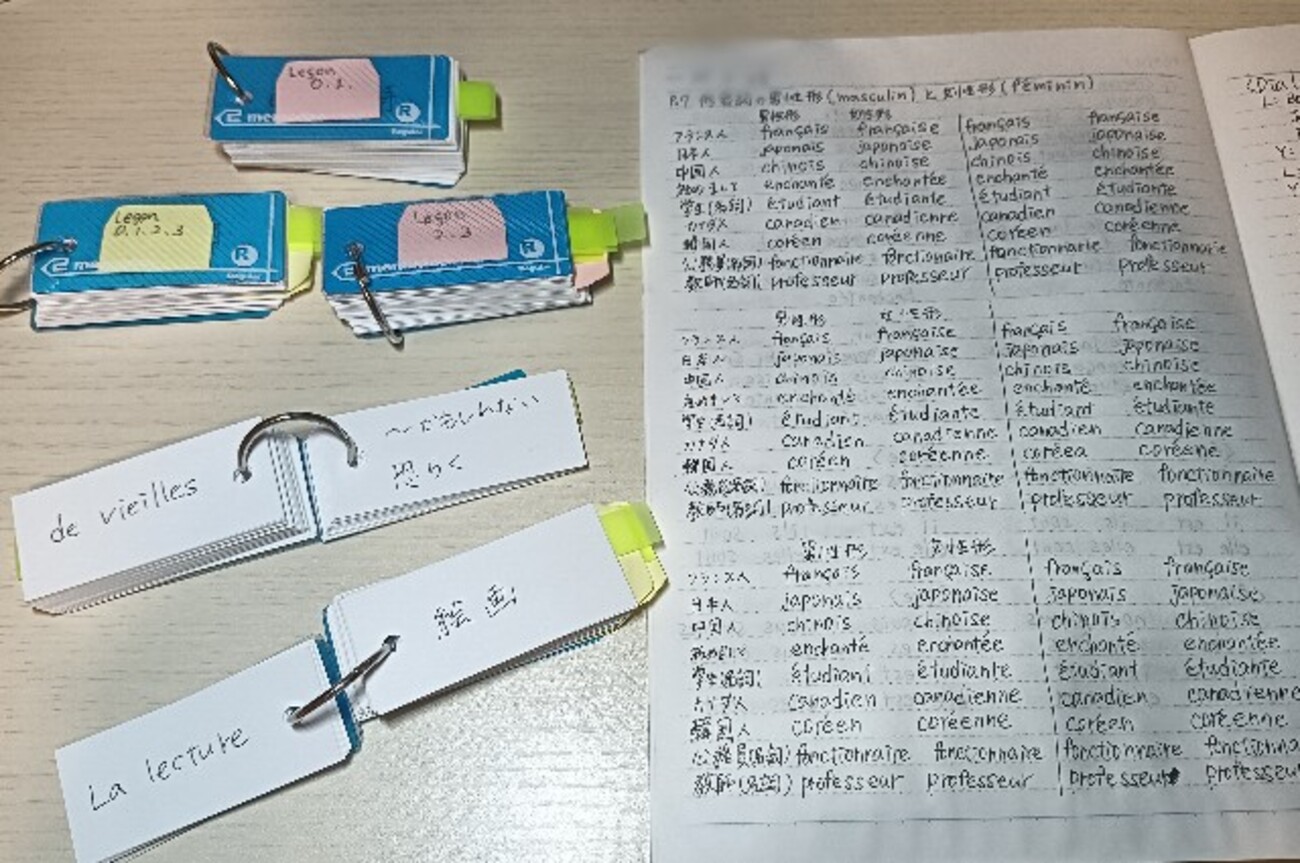 Leçon
0.1.
R
Regular
Leçon
0.1.2.3
R
Regular
Leçon
2.3
R
Regular
de vieilles
〜かもしれない
恐らく
絵画
La lecture
P.7 の男性形(masculin)と女性形(féminin)
男性形 女性形
フランス人 français française français française
日本人 japonais japonaise japonais japonaise
中国人 chinois chinoise chinois chinoise
はじめまして enchanté enchantée enchanté enchantée
学生(名詞) étudiant étudiante étudiant étudiante
カナダ人 canadien canadienne canadien canadienne
韓国人 coréen coréenne coréen coréenne
公務員(名詞) fonctionnaire fonctionnaire fonctionnarie fonctionnaire
教師(名詞) professeur professeur professeur professeur
男性形 女性形
フランス人 français française français française
日本人 japonais japonaise japonais japonaise
中国人 chinois chinoise chinois chinoise
はじめまして enchanté enchantée enchanté enchantée
学生(名詞) étudiant étudiante étudiant étudiante
カナダ人 canadien canadienne canadien canadienne
韓国人 coréen coréenne coréen coréenne
公務員(名詞) fonctionnaire fonctionnaire fonctionnaire fonctionnaire
教師(名詞) professeur professeur professeur professeur
男性形 女性形
フランス人 français française français française
日本人 japonais japonaise japonais japonaise
中国人 chinois chinoise chinois chinoise
はじめまして enchanté enchantée enchanté enchantée
学生(名詞) étudiant étudiante étudiant étudiante
カナダ人 canadien canadienne canadien canadienne
韓国人 coréen coréenne coréen coréenne
公務員(名詞) fonctionnaire fonctionnaire fonctionnaire fonctionna
教師(名詞) professeur professeur professeur professeur
(Dial
L:
Y:
L:
Y